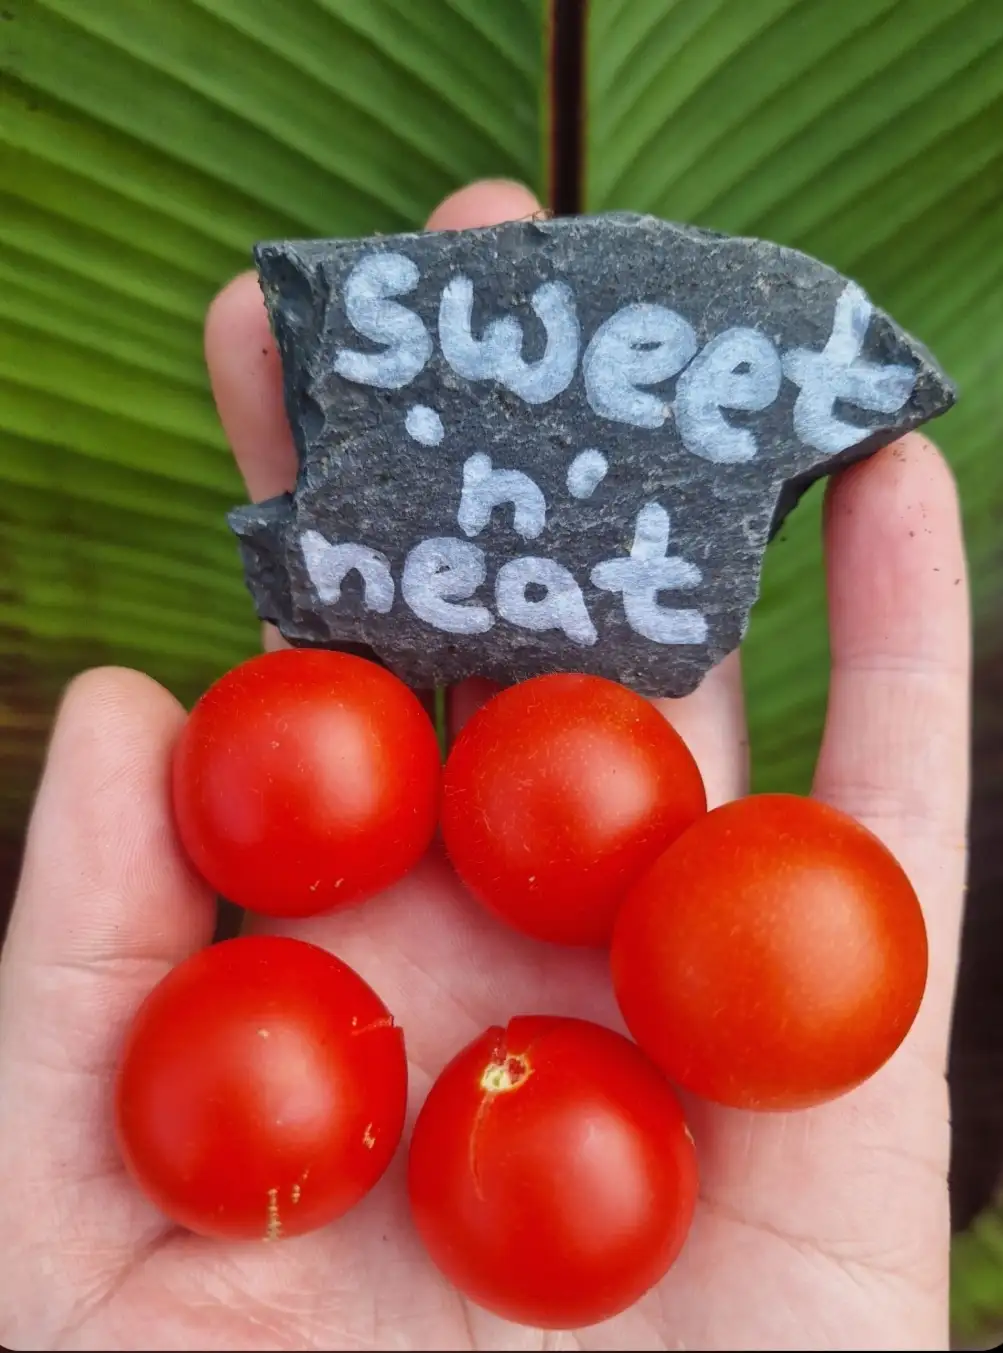 sweet
n'
neat